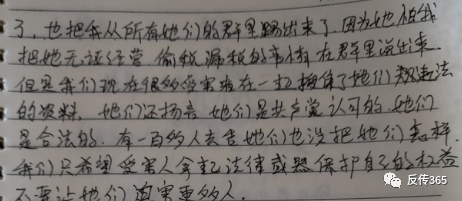 了，也把我从所有她们的群里踢出来了，因为她怕我
把她无证经营，偷税漏税的事情在群里说出来
但是我们现在很多受害者在一起掌握了她们违法
的资料，她们还扬言她们是共产党认可的，她们
是合法的，有一百多人去告她们也没把她们怎样
我们只希望受害人拿起法律武器保护自己的权益
不要让她们迫害更多人。
反传365